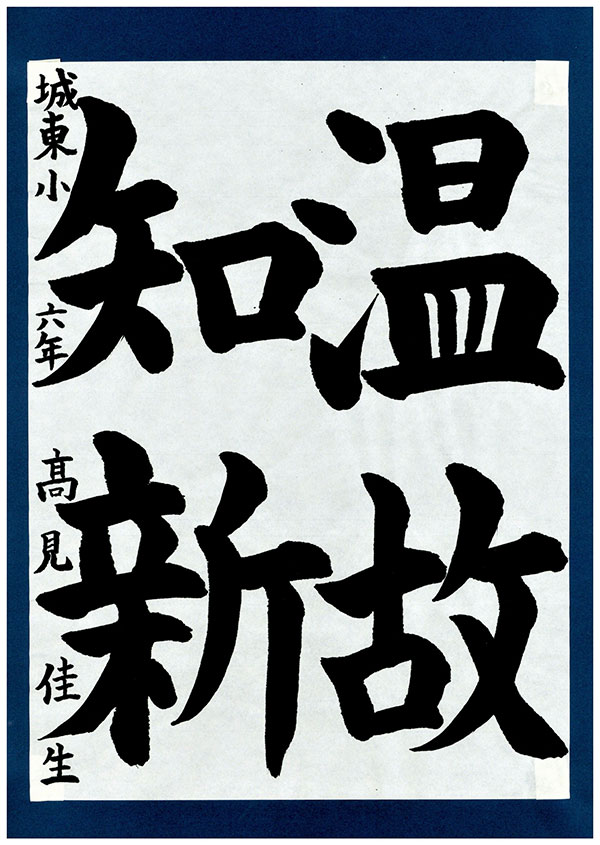 温故
知新
城東小 六年 髙見 佳生